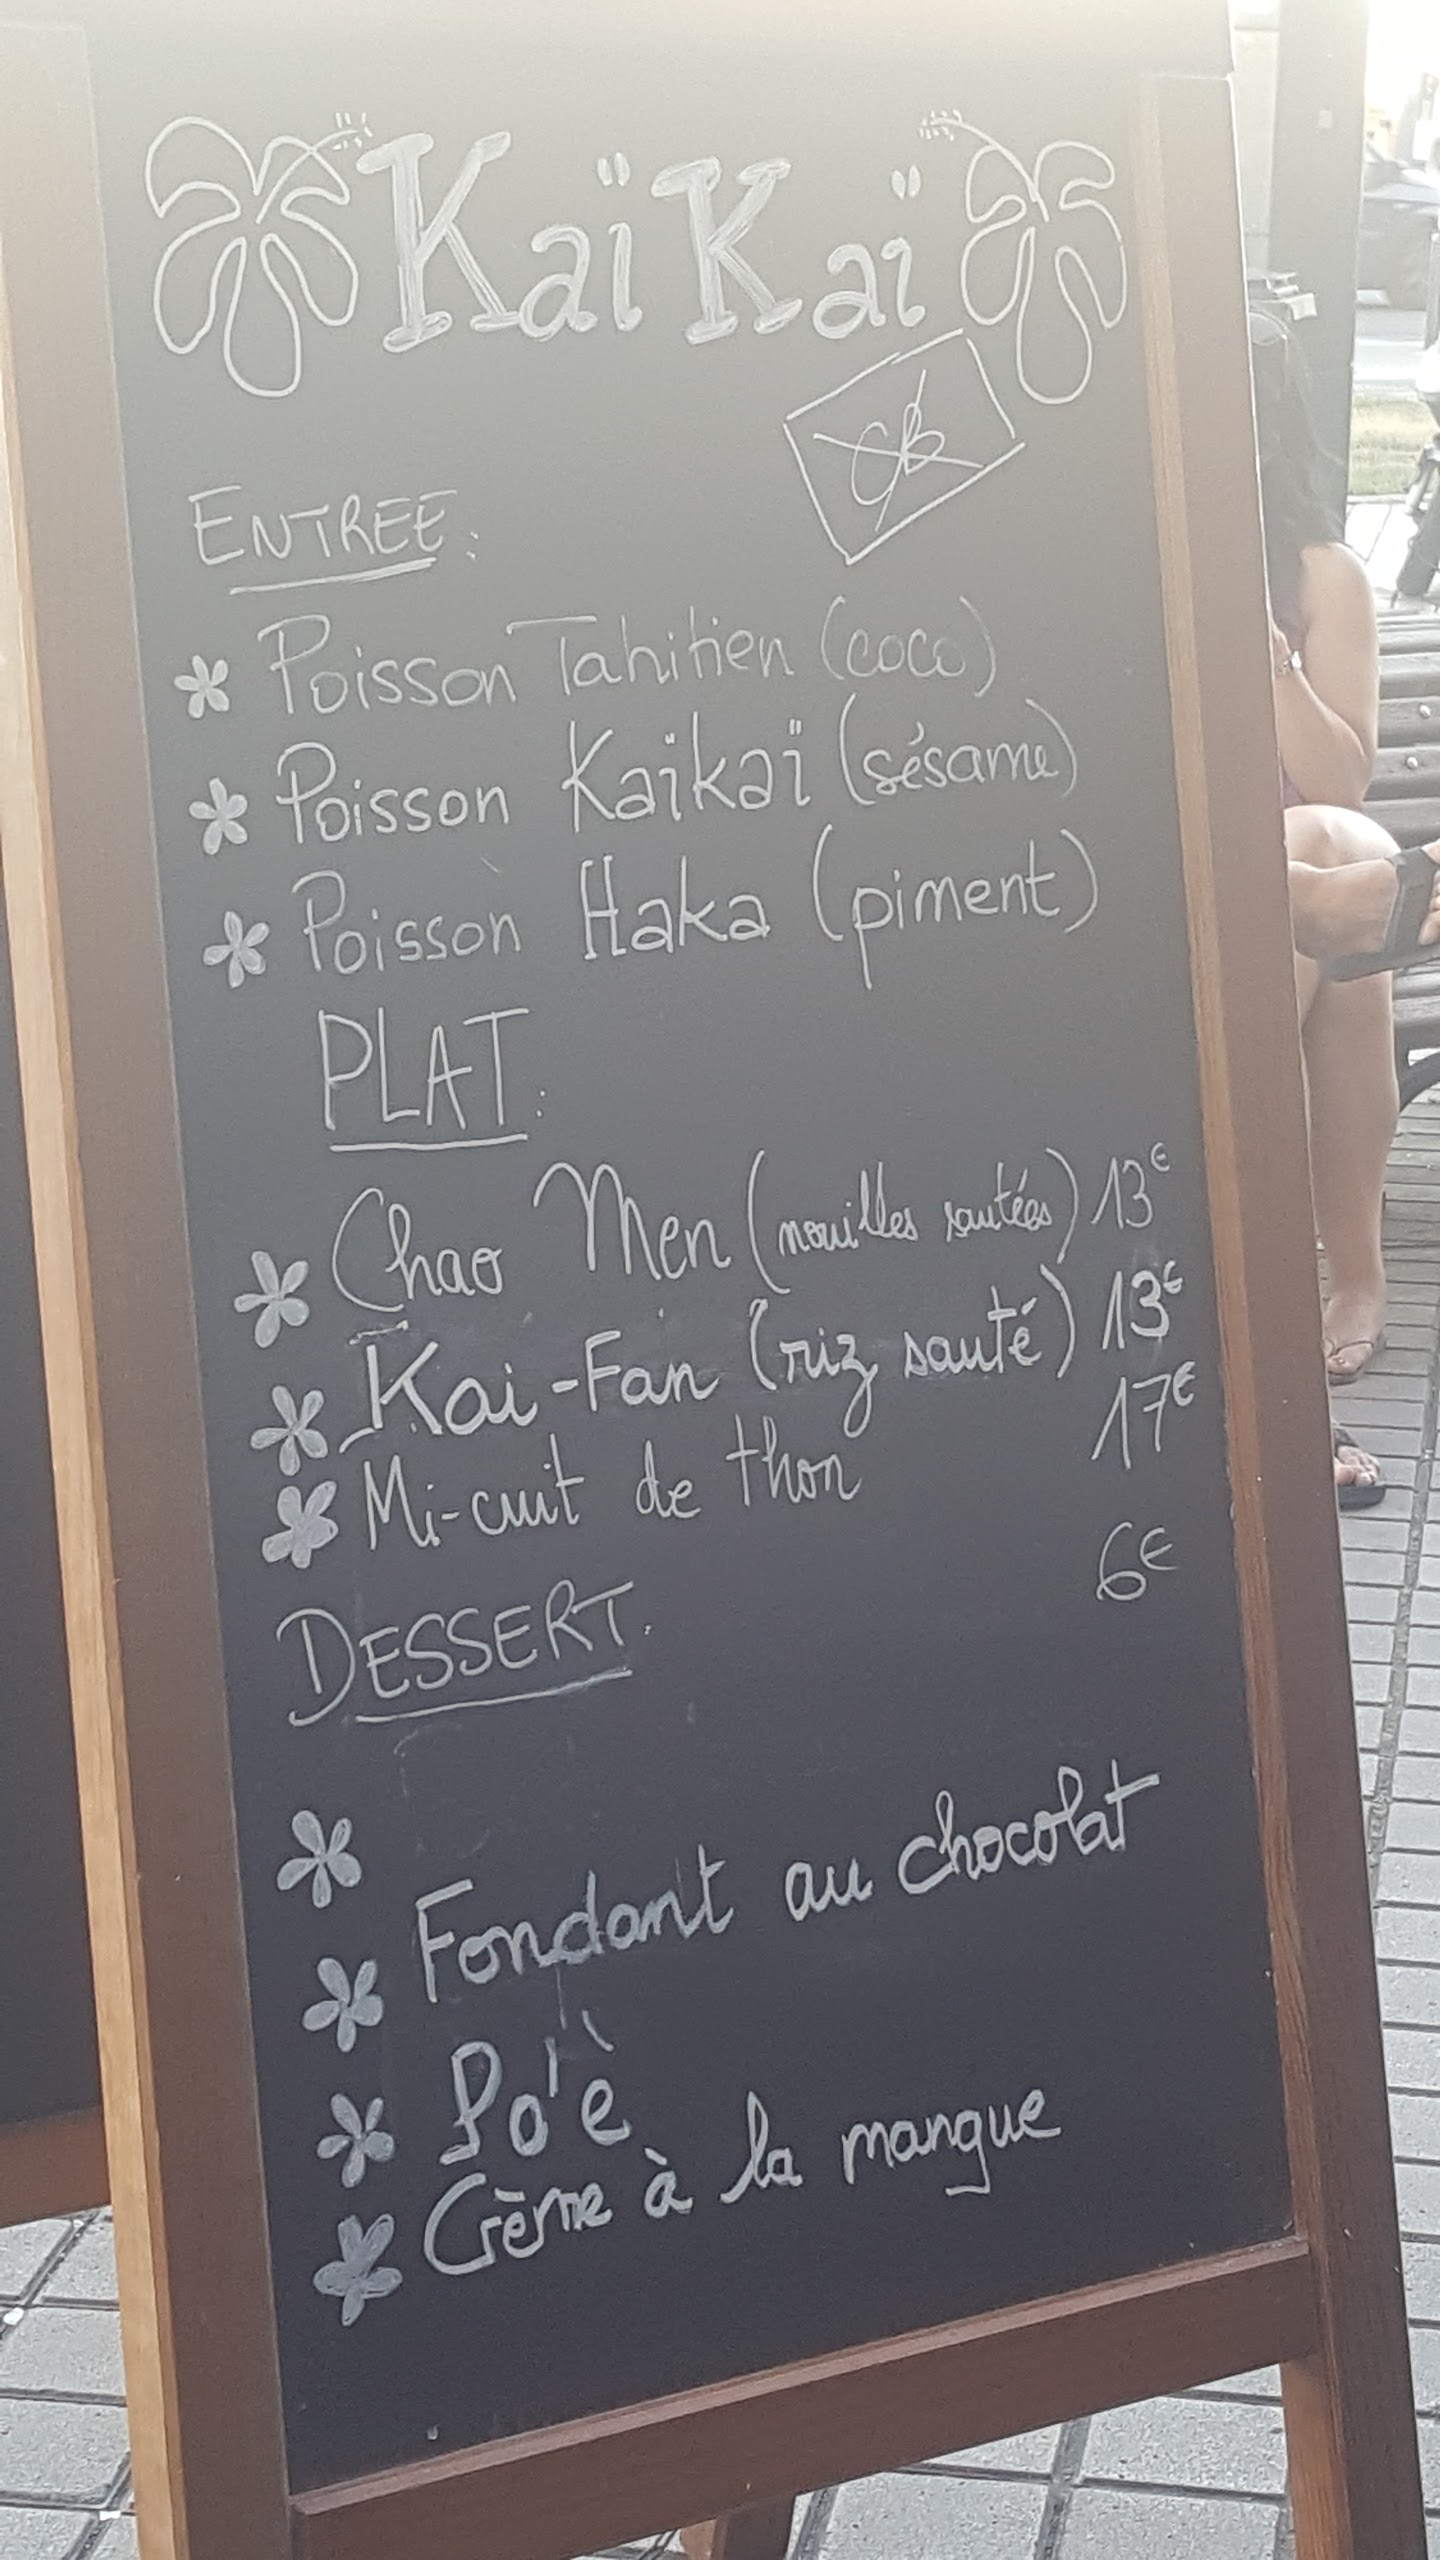 Kaï Kaï
CB
ENTREE :
Poisson Tahitien (coco)
Poisson Kaïkaï (sésame)
Poisson Haka (piment)
PLAT :
Chao Men (nouilles sautées) 13€
Kai-Fan (riz sauté) 13€
Mi-cuit de thon 17€
DESSERT : 6€
Fondant au chocolat
Po'è
Crème à la mangue